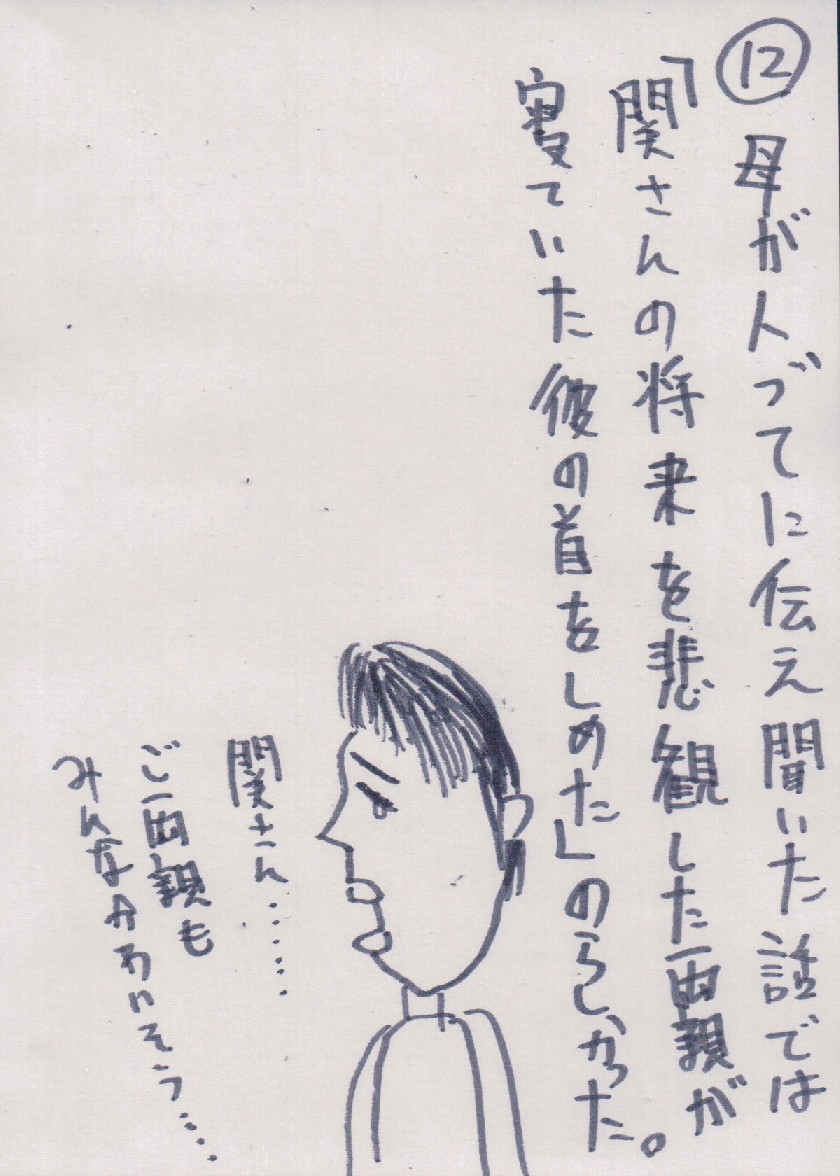 ⑫
母が人づてに伝え聞いた話では
「関さんの将来を悲観した両親が
寝ていた彼の首をしめた」のらしかった。
関さん……
ご両親も
みんなかわいそう……